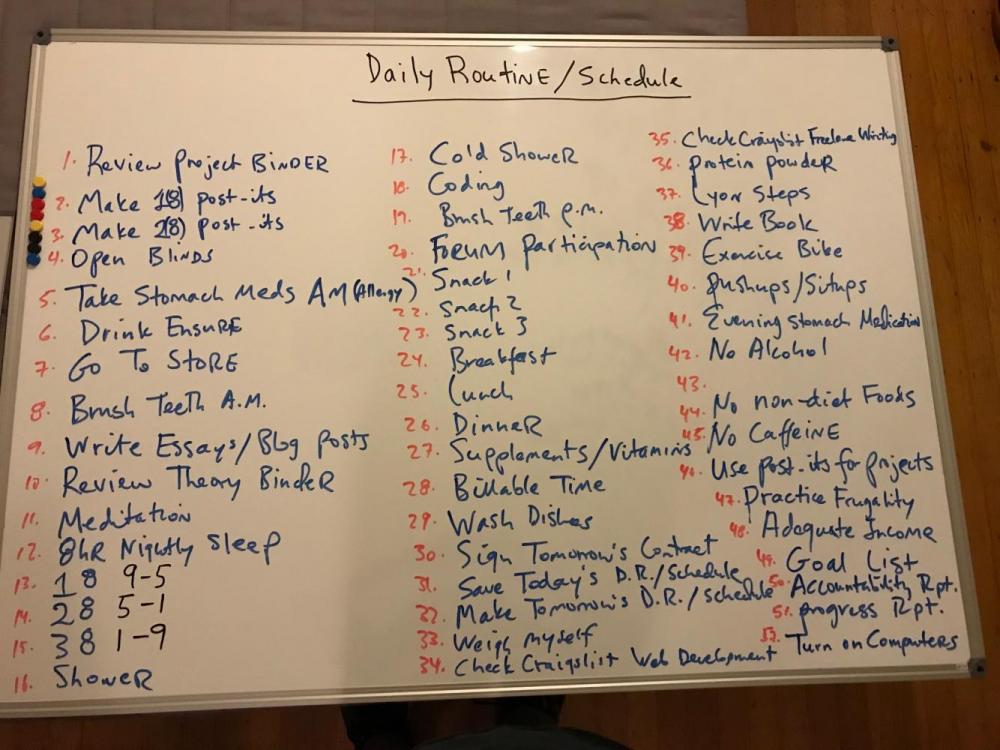 Daily Routine/Schedule
1. Review Project Binder
2. Make 1(8) post-its
3. Make 2(8) post-its
4. Open Blinds
5. Take Stomach Meds AM (Allergy)
6. Drink Ensure
7. Go To Store
8. Brush Teeth A.M.
9. Write Essays/Blog posts
10. Review Theory Binder
11. Meditation
12. 8hr Nightly Sleep
13. 1 8 9-5
14. 2 8 5-1
15. 3 8 1-9
16. Shower
17. Cold Shower
18. Coding
19. Brush Teeth P.M.
20. Forum Participation
21. Snack 1
22. Snack 2
23. Snack 3
24. Breakfast
25. Lunch
26. Dinner
27. Supplements/Vitamins
28. Billable Time
29. Wash Dishes
30. Sign Tomorrow's Contract
31. Save Today's D.R./Schedule
32. Make Tomorrow's D.R./Schedule
33. Weigh myself
34. Check Craigslist Web Development
35. Check Craigslist Freelance Writing
36. Protein powder
37. Lyon Steps
38. Write Book
39. Exercise Bike
40. Pushups/Situps
41. Evening Stomach Medication
42. No Alcohol
43.
44. No non-diet Foods
45. No Caffeine
46. Use post-its for projects
47. Practice Frugality
48. Adequate Income
49. Goal List
50. Accountability Rpt.
51. Progress Rpt.
Turn on Computers